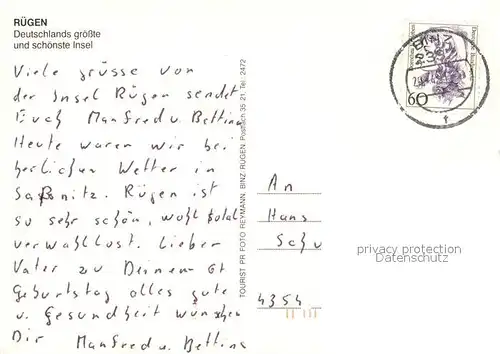 RÜGEN
Deutschlands größte
und schönste Insel
Viele grüsse von
der Insel Rügen sendet
Euch Manfred u. Bettina
Heute waren wir bei
herlichen Wetter in
Saßnitz. Rügen ist
so sehr schön, wohl total
verwahllost. Lieber
Vater zu Deinem 61
Geburtstag alles gute
u. Gesundheit wünschen
Dir Manfred u. Bettina
TOURIST PR FOTO REYMANN, BINZ-RÜGEN, Postfach 35 21, Tel: 2472
BINZ
60
An
Hans
Schu
4354
privacy protection
Datenschutz